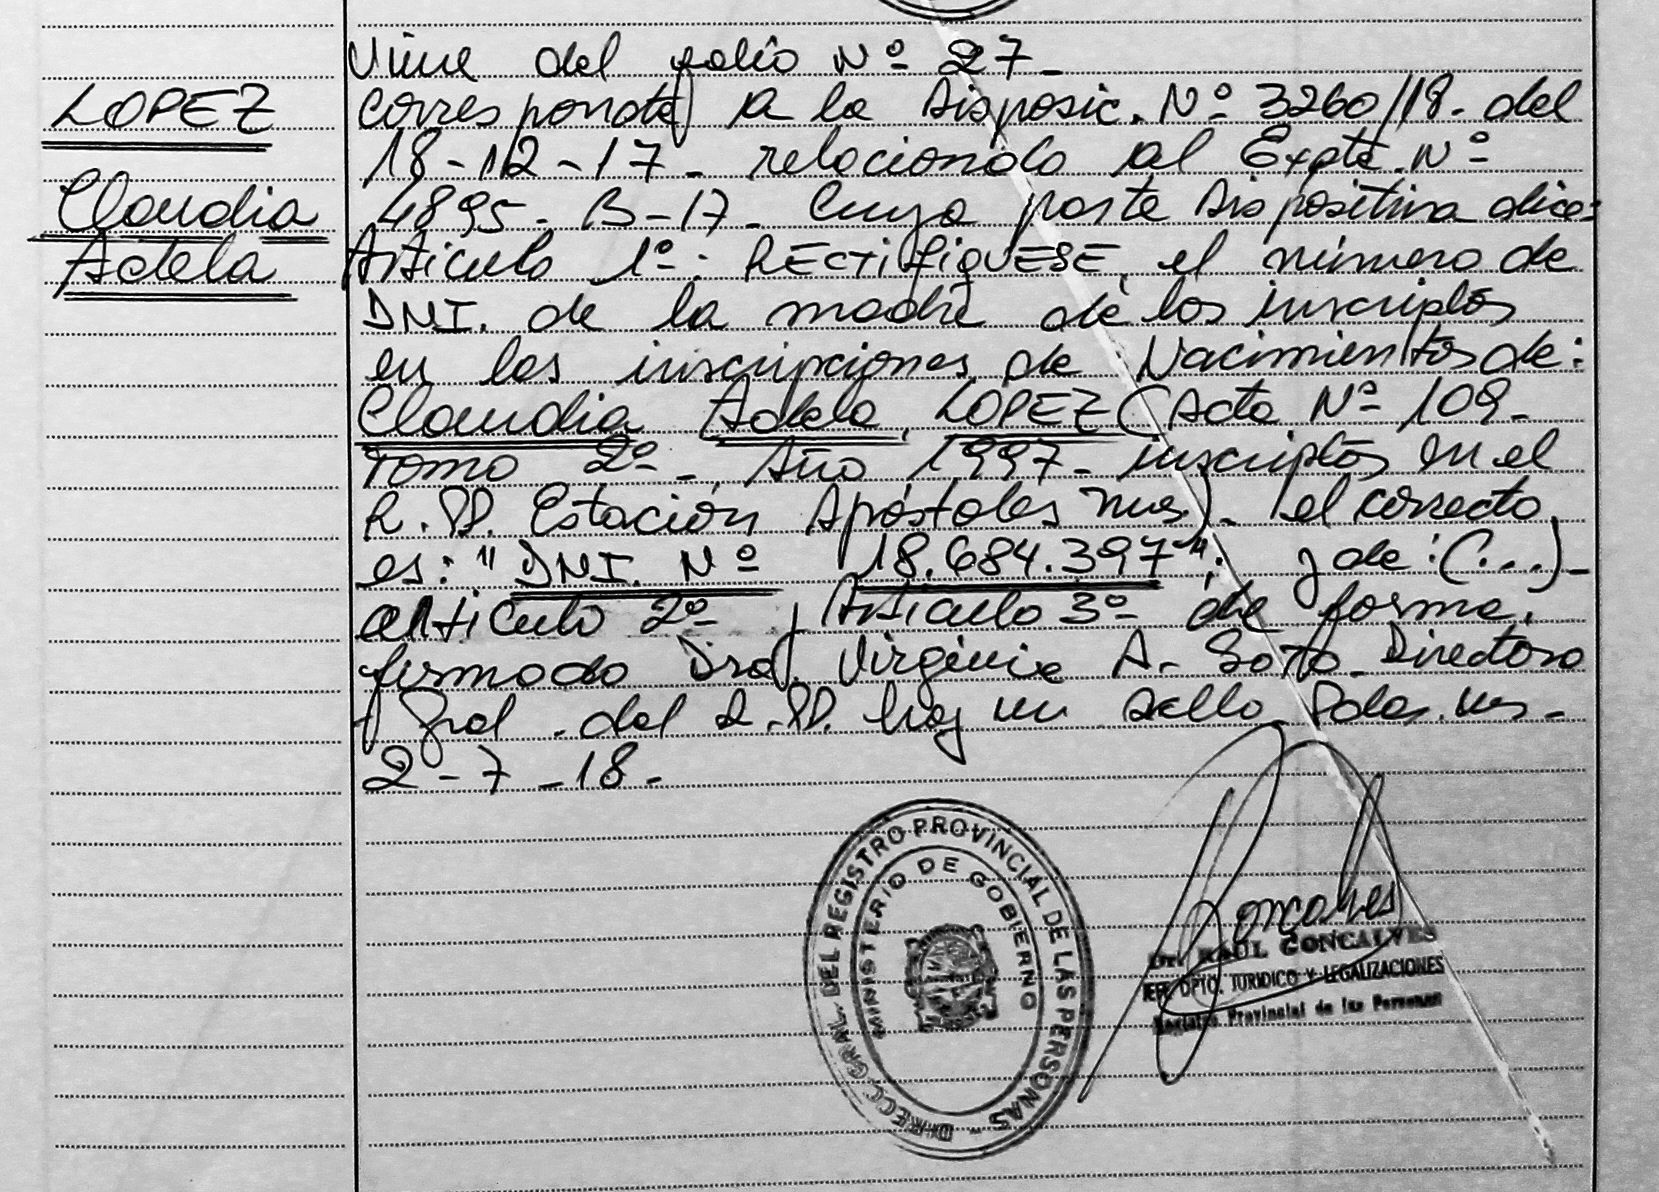 LOPEZ
Claudia
Adela
Viene del folio Nº 27-
corresponde a la Disposic. Nº 3260/18. del
18-12-17- relacionado al Expte. Nº
4895- B-17- Cuya parte Dispositiva dice:
Artículo 1º: RECTIFIQUESE, el número de
DNI. de la madre de los inscriptos
en las inscripciones de Nacimientos de:
Claudia Adela, LOPEZ (Acta Nº 109-
Tomo 2º-, Año 1997- inscriptos en el
R.PP. Estación Apóstoles Mnes)- el correcto
es: "DNI. Nº 18.684.397"; y de: (...)-
artículo 2º y Artículo 3º de forma.
firmado Dra. Virginia A. Soto- Directora
Gral. del R.PP. hay un sello Pdas. Mns-
2-7-18-
DIRECC. GRAL. DEL REGISTRO PROVINCIAL DE LAS PERSONAS -
MINISTERIO DE GOBIERNO
Goncalves
Dr. RAUL GONCALVES
JEFE DPTO. JURIDICO Y LEGALIZACIONES
Registro Provincial de las Personas